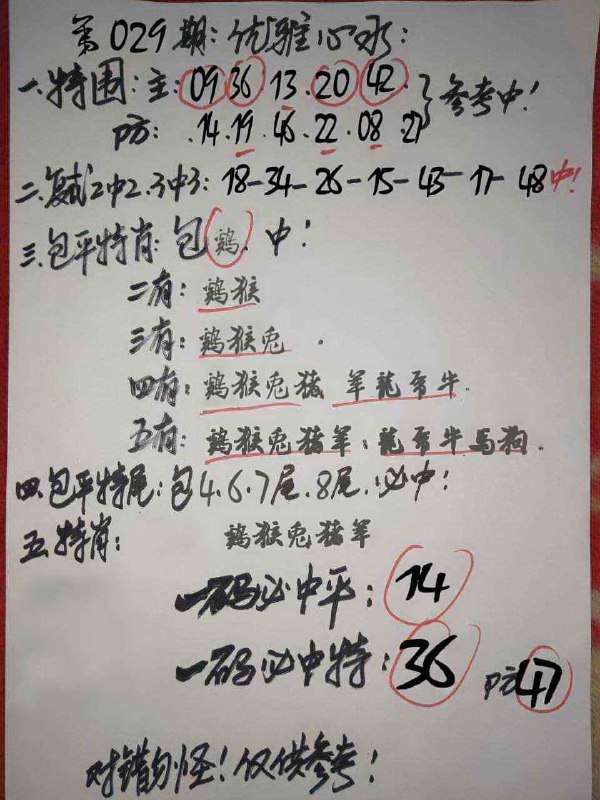 第029期:优雅心水:
一.特围:主:09.36.13.20.42.
防:.14.19.46.22.08.27
}参考中!
二.复试2中2.3中3:18-34-26-15-43-17-48中!
三.包平特肖:包鷄.中!
二有:鷄猴
三有:鷄猴兔.
四有:鷄猴兔猪 羊龍 牛.
五有:鷄猴兔猪羊;龍 牛馬狗.
四.包平特尾:包4.6.7尾.8尾.必中!
五.特肖: 鷄猴兔猪羊
一码必中平:14
一码必中特:36 防47
对错勿怪!仅供参考!